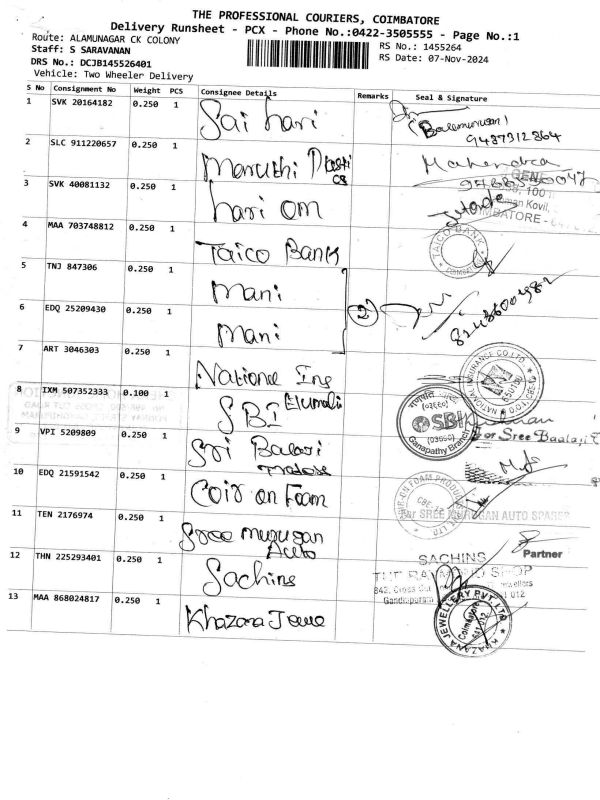 THE PROFESSIONAL COURIERS, COIMBATORE
Delivery Runsheet - PCX - Phone No.:0422-3505555 - Page No.:1
Route: ALAMUNAGAR CK COLONY
RS No.: 1455264
Staff: S SARAVANAN
RS Date: 07-Nov-2024
DRS No.: DCJB145526401
Vehicle: Two Wheeler Delivery
S No Consignment No Weight PCS Consignee Details Remarks Seal & Signature
1 SVK 20164182 0.250 1 Sai hari
(Balamurugan)
9487312864
2 SLC 911220657 0.250 1 Maruthi Mahendra
3 SVK 40081132 0.250 1 hari om
COIMBATORE
4 MAA 703748812 0.250 1 Taico Bank TAICO BANK
5 TNJ 847306 0.250 1 mani
2
6 EDQ 25209430 0.250 1 mani
7 ART 3046303 0.250 1 National Ins NATIONAL INSURANCE CO. LTD.
8 IXM 507352333 0.100 1 SBI Elumali SBI
(03660)
Ganapathy Branch
9 VPI 5209809 0.250 1 Sri Balaji
For Sree Baalaji
10 EDQ 21591542 0.250 1 Coir on Foam
11 TEN 2176974 0.250 1 Sree murugan Auto
For SREE MURUGAN AUTO SPARES
Partner
12 THN 225293401 0.250 1 Sachins
SACHINS
THE RAYMOND SHOP
842, Cross Cut
Gandhipuram
13 MAA 868024817 0.250 1 Khazana Jewe
KHAZANA JEWELLERY PVT LTD
Coimbatore